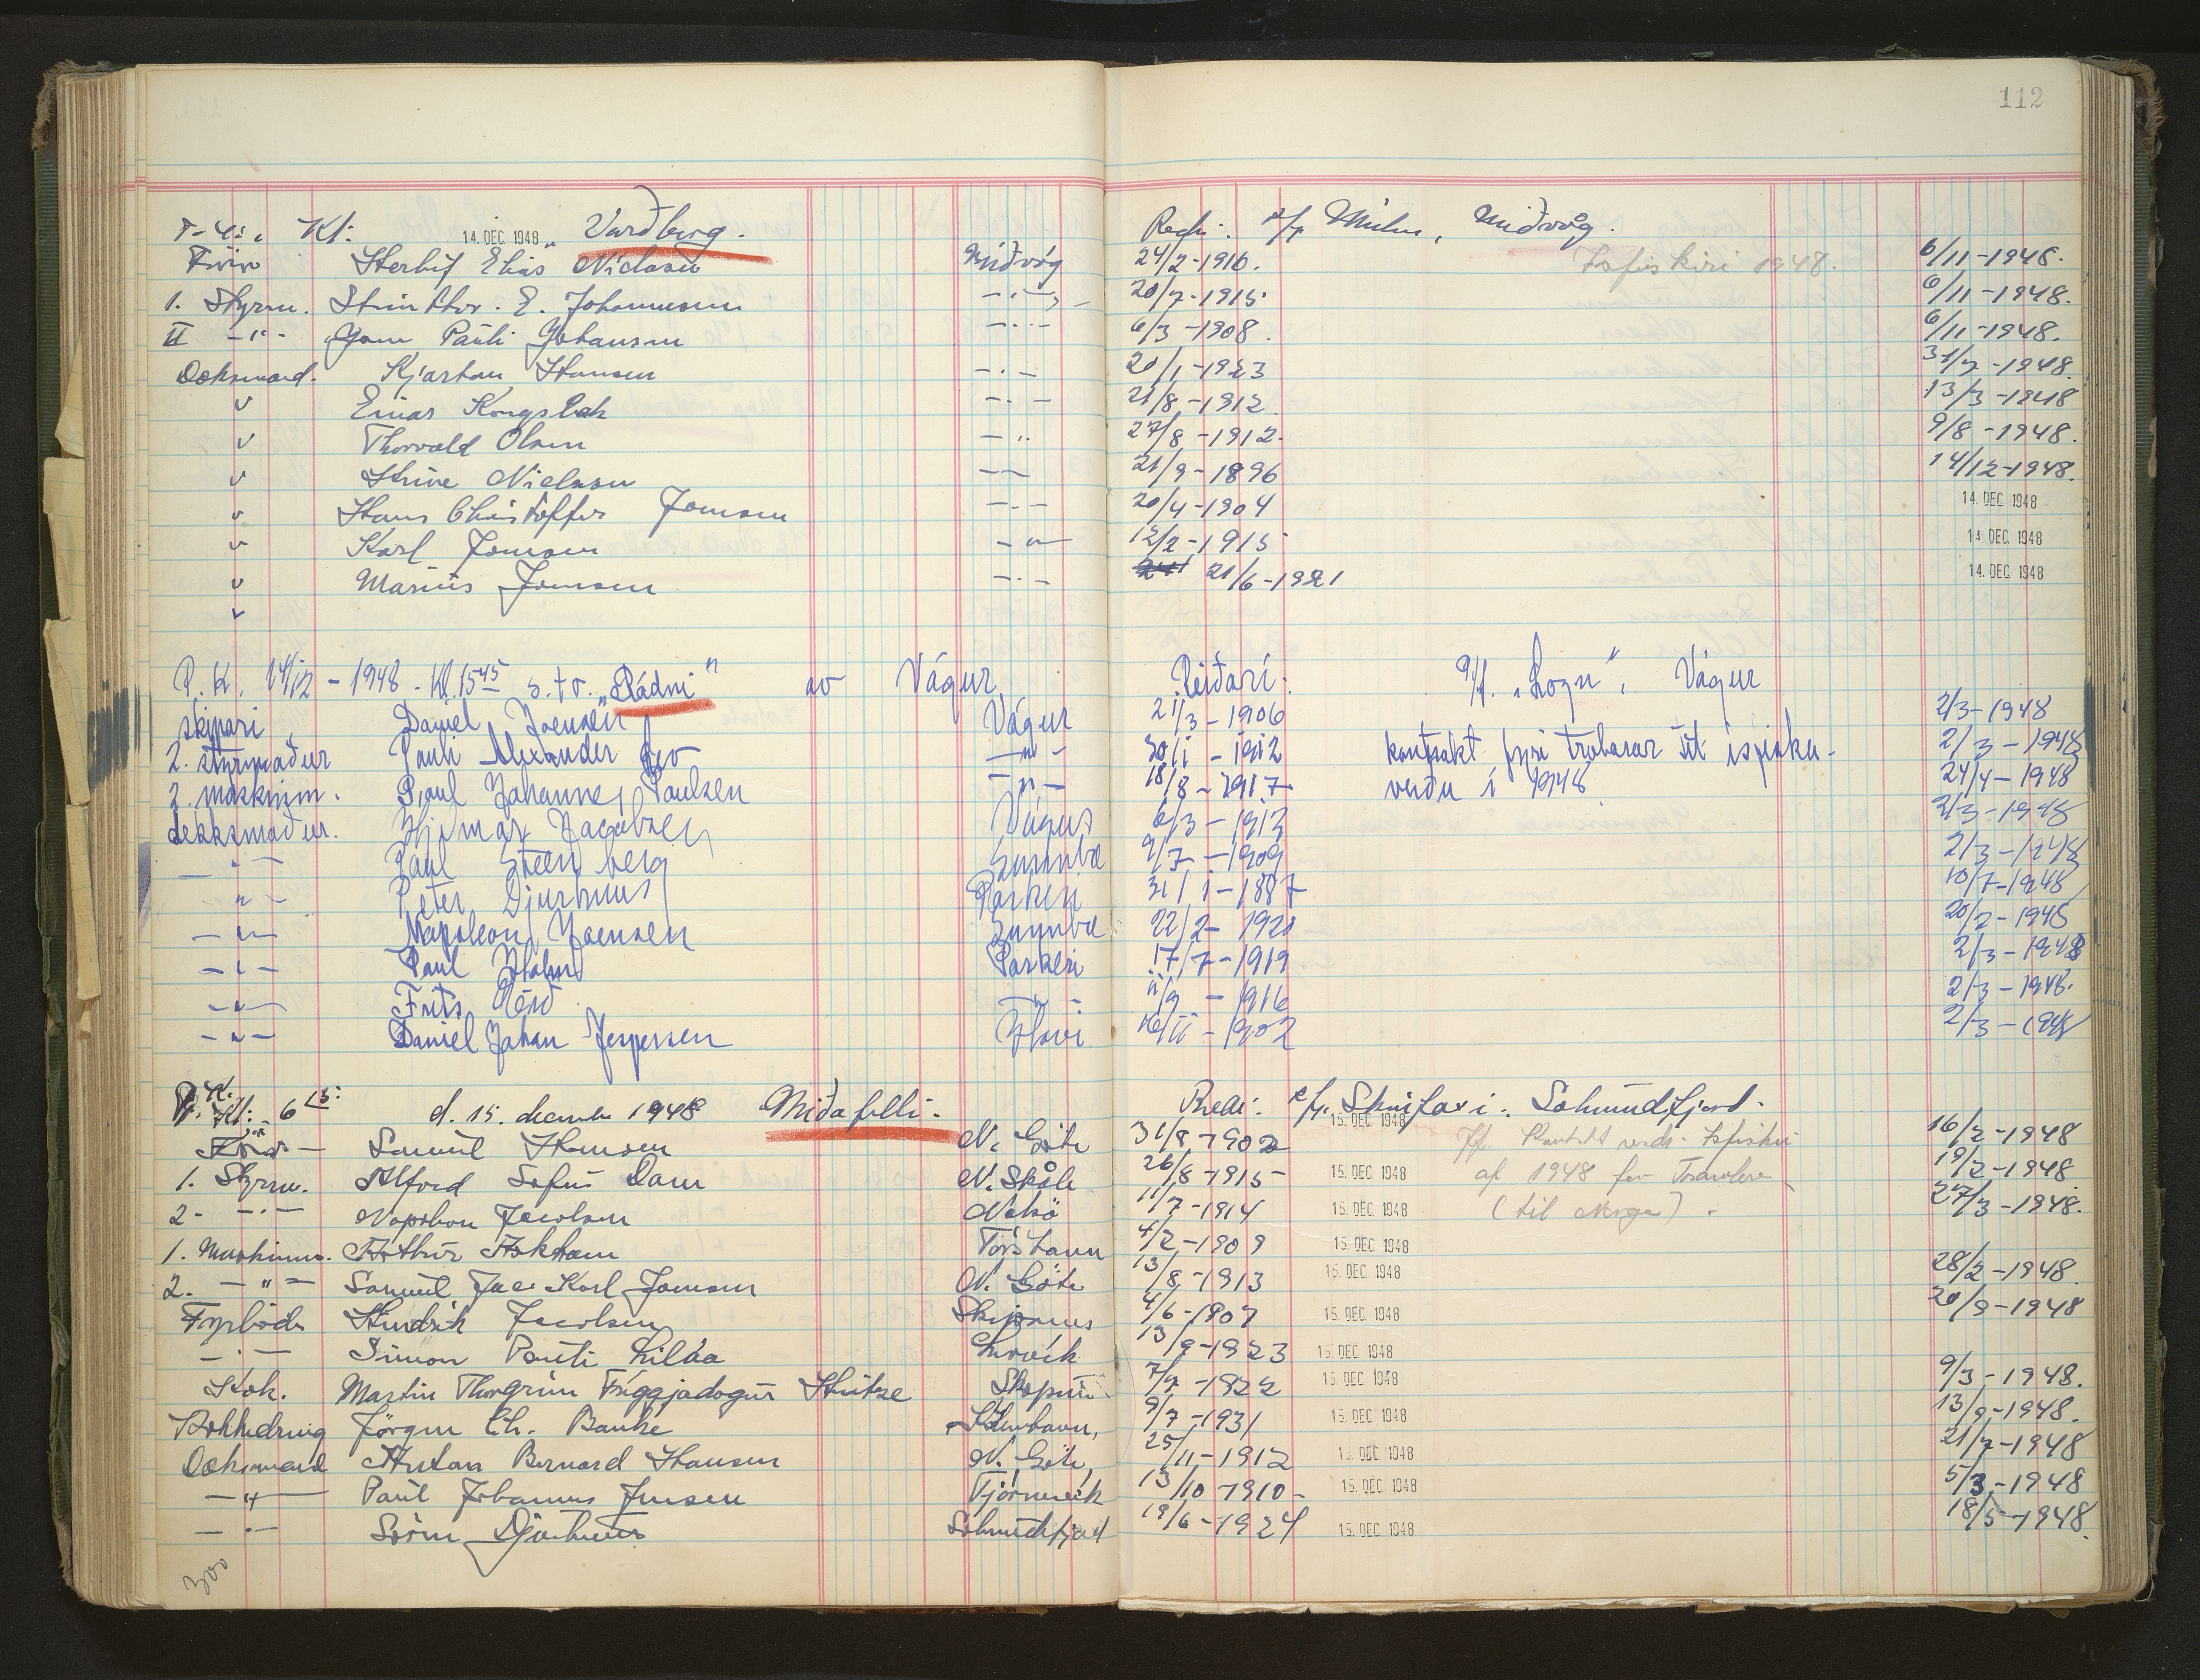 112
Kl: 14. DEC 1948 „ Varðberg. Redr: p/f Midvåg.
Förer Herluf Elias Niclasen Miðvåg 24/2-1916. Isfiskiri 1948. 6/11-1948.
1. Styrm. E. Johannesen 20/7-1915 6/11-1948.
II -"- Páuli Johansen -"- 6/3-1908. 6/11-1948.
Dæksmand. Kjartan Hansen -"- 20/1-1923 31/7-1948
v Einar Kongsbak -"- 21/8-1912 13/3-1948
v Thorvald Olsen -"- 27/8-1912. 9/8-1948.
v Niclasen -"- 21/9-1896 14/12-1948.
v Hans Christoffer Joensen -"- 20/4-1904 14. DEC 1948
v Karl Joensen -"- 12/2-1915 14. DEC. 1948
v Marius Joensen -"- 21/6-1921 14. DEC 1948
v
P.K. 14/12-1948. Kl. 15 45 s.tr. „Rádni" av Vágur Reiðarí: p/f. „Logn", Vágur
skipari Daniel Joensen Vágur 21/3-1906 2/3-1948
2. stýrmaður Pauli Alexander -"- 30/1-1912 kontrakt fyri trolarar til ísfiska- 2/3-1948
2. maskinm. Poul Johannes Poulsen -"- 18/8-1917 veiðu í 1948 24/4-1948
dekksmaður. Hjalmar Jacobsen Vágur 6/3-1913 2/3-1948
-"- Paul Steenberg Sumbø 9/7-1909 2/3-1948
-"- Peter Djurhuus Porkeri 31/1-1887 10/7-1948
-"- Napoleon Joensen Sumbø 22/2-1921 20/2-1948
-"- Paul Holm Porkeri 17/7-1919 2/3-1948
-"- Frits -"- 11/9-1916 2/3-1948.
-"- Daniel Johan Jespersen Hovi 16/11-1902 2/3-1948
P.K. Kl: 6 15: d. 15. december 1948 Miðafelli. Redr: p/f. Skinfaxi. Solmundfjord.
Förer - Samuel Hansen N. Göte 31/8-1902 15. DEC 1948 16/2-1948
1. Styrm. Alfred Sofus Dam N. Skåle 26/8-1915 15. DEC 1948 af 1948 for Trawlere 19/2-1948
2- -"- Napoleon Jacobsen Nolsö 11/7-1914 15. DEC 1948 (til Norge). 27/3-1948.
1. Maskinm. Arthur Askham Tórshavn 4/2-1909 15. DEC 1948
2. -"- Samuel Jac. Karl Joensen N. Göte 13/8-1913 15. DEC 1948 28/2-1948
Fyrböder Hendrik Jacobsen Skipanes 4/6-1907 15. DEC 1948 20/9-1948
-"- Simon Pauli Lilaa Lervík 13/9-1923 15. DEC 1948
Kok. Martin Thorgrim Friggjadogur Hentze Skopun 7/7-1922 15. DEC 1948 9/3-1948.
Kokkedreng Jörgen Ch. Banke Köbenhavn, 9/7-1931 15. DEC 1948 13/9-1948.
Dæksmand Anton Bernard Hansen N. Göte, 25/11-1912 15. DEC 1948 21/7-1948
-"- Paul Johannes Jensen Tjörnevík 13/10-1910- 15. DEC 1948 5/3-1948
-"- Sörin Djurhuus Solmundfjord 19/6-1924 15. DEC 1948 18/5-1948.
300